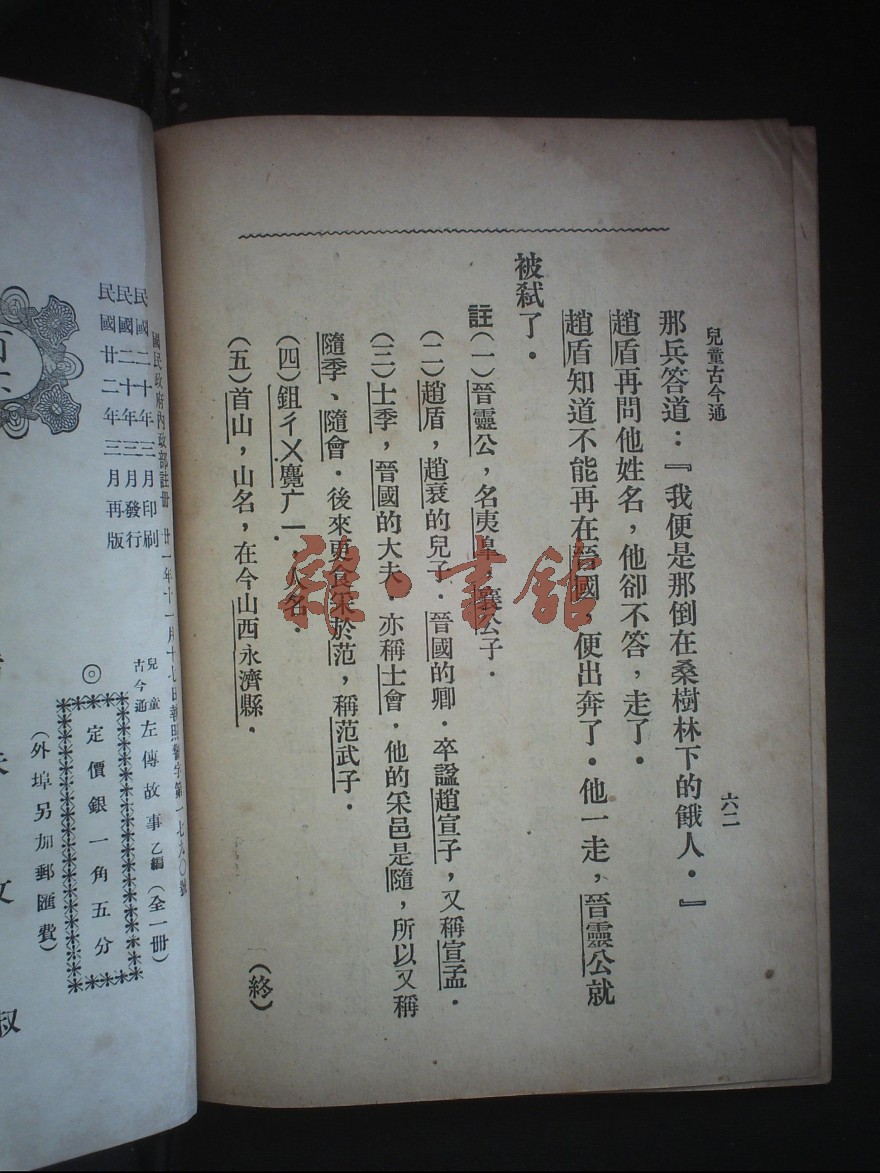 兒童古今通
六二
那兵答道：『我便是那倒在桑樹林下的餓人．』
趙盾再問他姓名，他卻不答，走了．
趙盾知道不能再在晉國，便出奔了．他一走，晉靈公就
被弒了．
註（一）晉靈公，名夷皋，襄公子．
（二）趙盾，趙衰的兒子．晉國的卿．卒諡趙宣子，又稱宣孟．
（三）士季，晉國的大夫．亦稱士會，他的采邑是隨，所以又稱
隨季、隨會．後來更食采於范，稱范武子．
（四）鉏ㄔㄨ麑广一．人名．
（五）首山，山名，在今山西永濟縣．
（終）
國民政府內政部註冊 廿一年十一月十七日執照警字第一七九〇號
民國二十年三月印刷
民國二十年三月發行
民國廿二年三月再版
兒童古今通 左傳故事 乙編（全一冊）
◎定價銀一角五分
（外埠另加郵匯費）
雜·書館